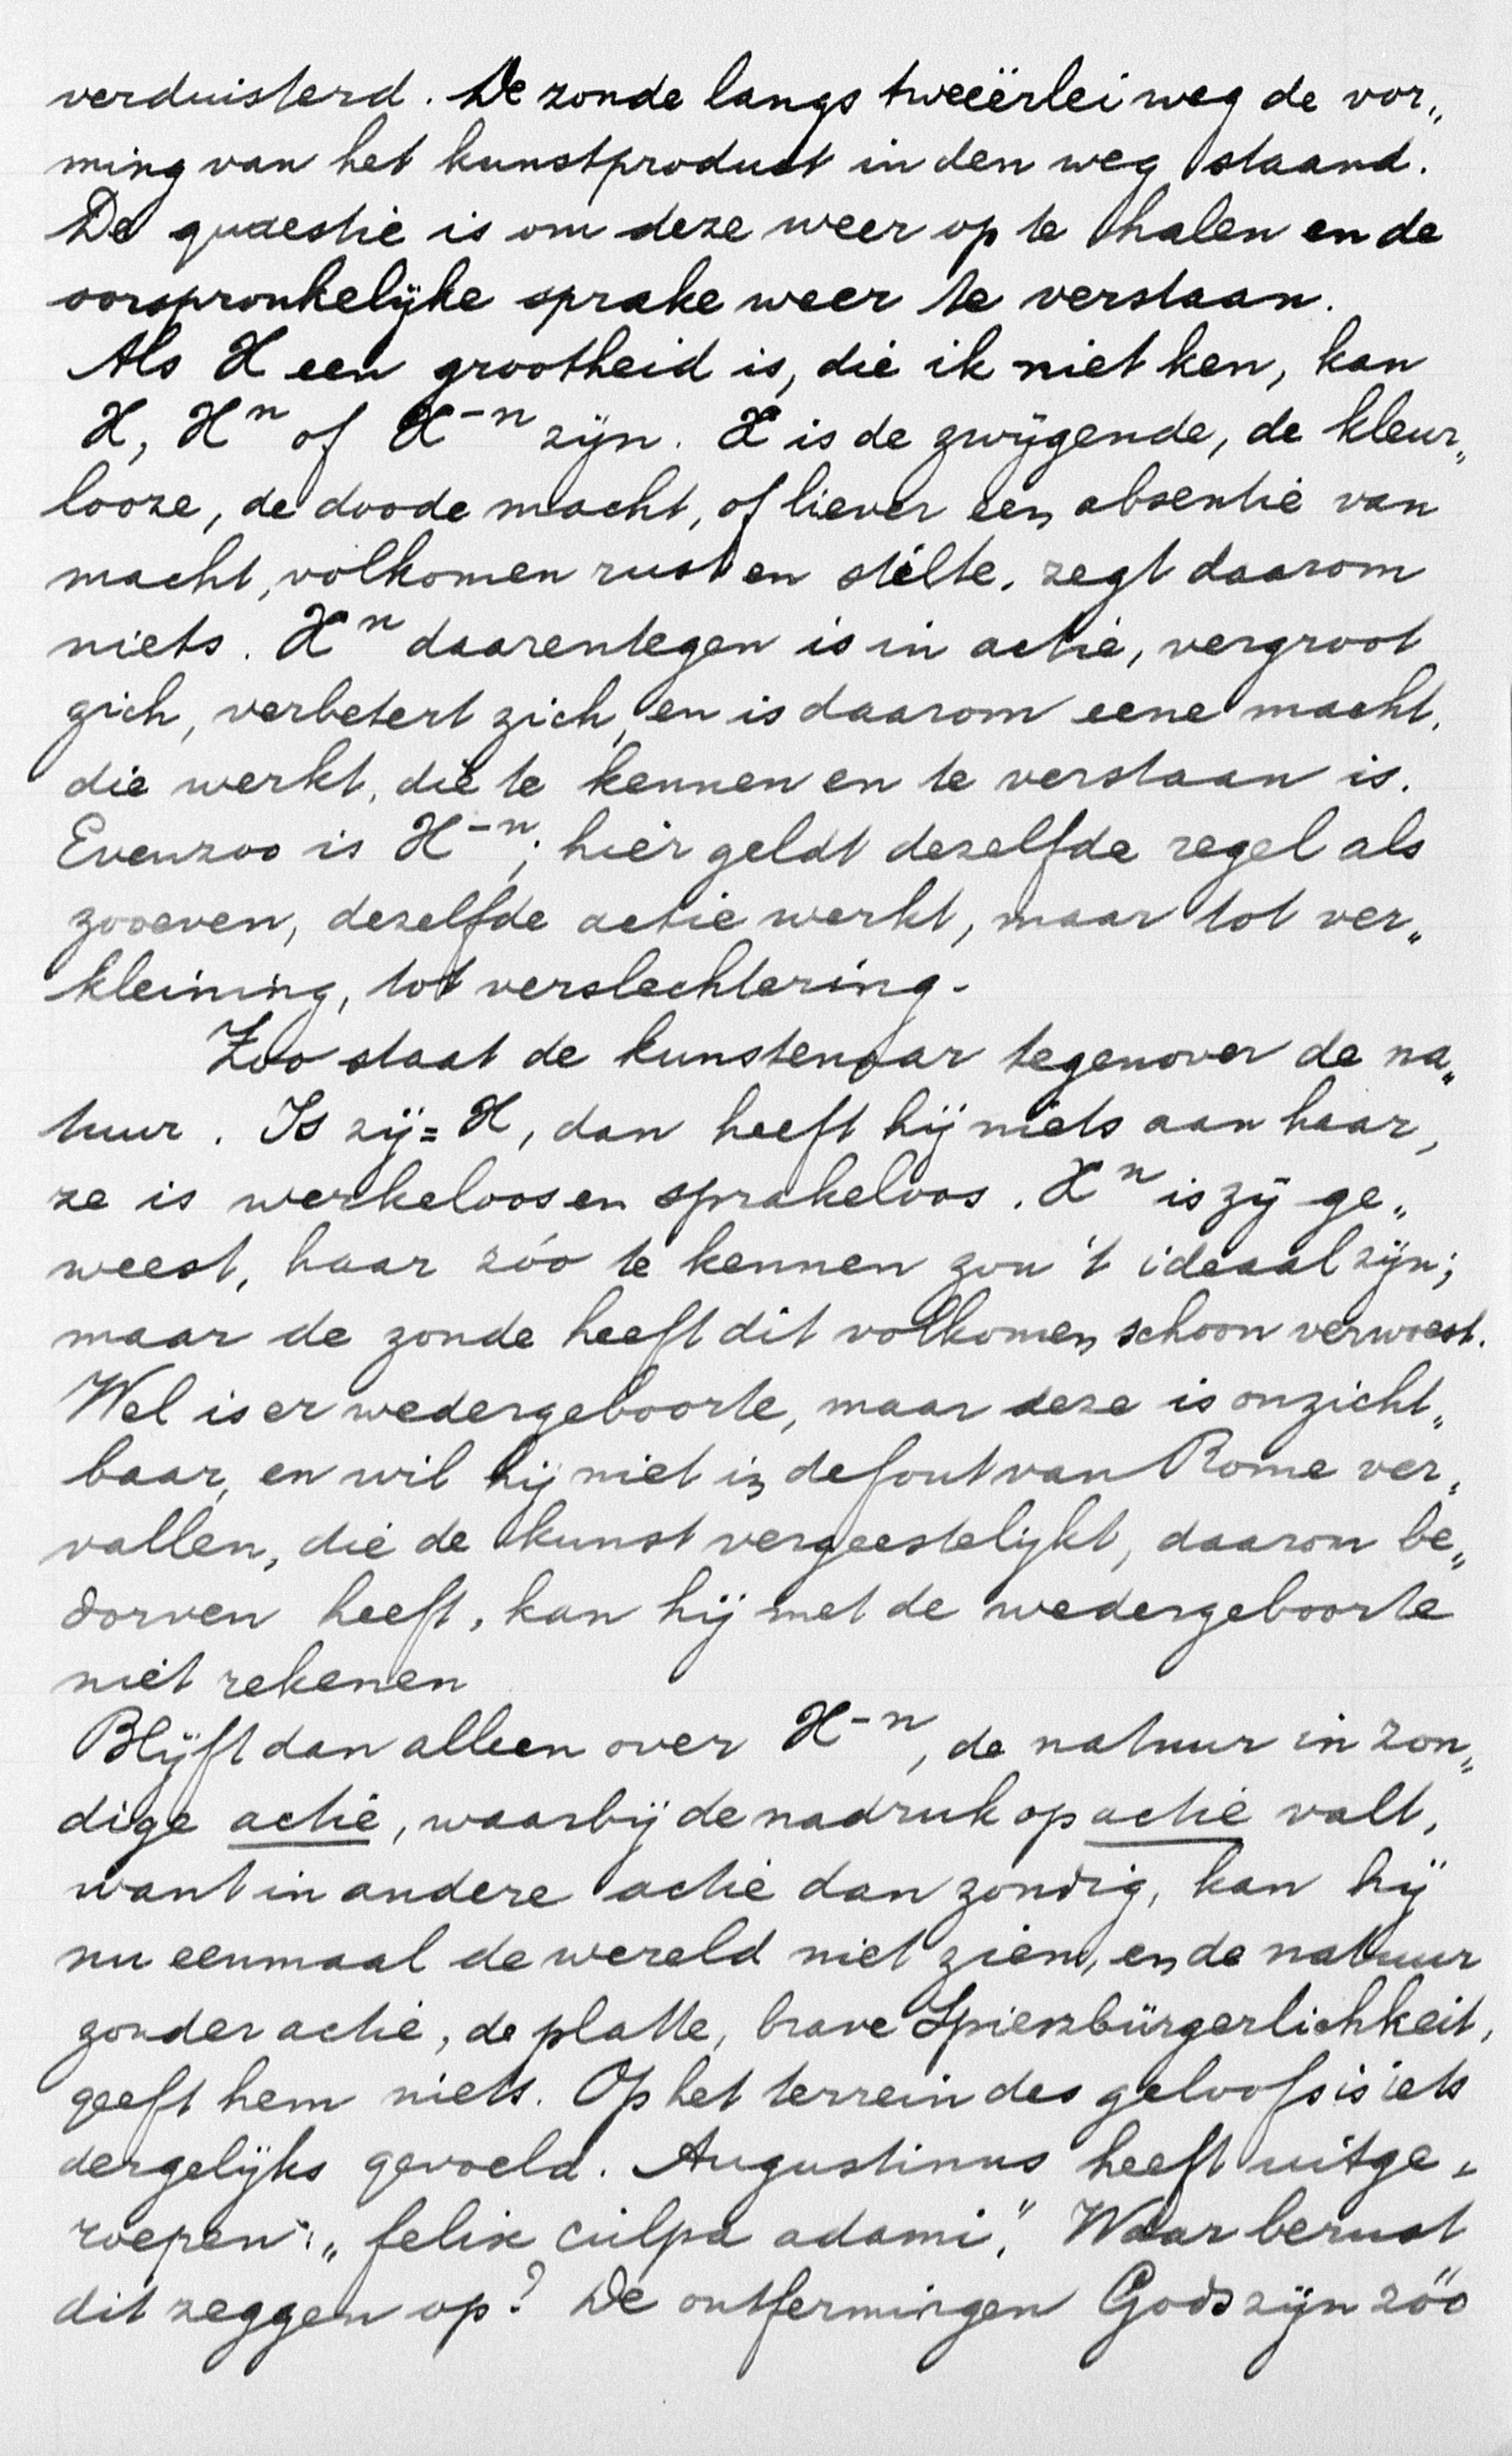 verduisterd. De zonde langs tweeërlei weg de vor„
ming van het kunstproduct in den weg staand.
De quaestie is om deze weer op te halen en de
oorspronkelijke sprake weer te verstaan.
Als X een grootheid is, die ik niet ken, kan
X, Xⁿ of X⁻ⁿ zijn. X is de zwijgende, de kleur„
looze, de doode macht, of liever een absentie van
macht, volkomen rust en stilte, zegt daarom
niets. Xⁿ daarentegen is in actie, vergroot
zich, verbetert zich, en is daarom eene macht,
die werkt, die te kennen en te verstaan is.
Evenzoo is X⁻ⁿ; hier geldt dezelfde regel als
zooeven, dezelfde actie werkt, maar tot ver„
kleining, tot verslechtering.
Zoo staat de kunstenaar tegenover de na„
tuur. Is zij = X, dan heeft hij niets aan haar,
ze is werkeloos en sprakeloos. Xⁿ is zij ge„
weest, haar zóo te kennen zou 't ideaal zijn;
maar de zonde heeft dit volkomen schoon verwoest.
Wel is er wedergeboorte, maar deze is onzicht„
baar, en wil hij niet in de fout van Rome ver„
vallen, die de kunst vergeestelijkt, daarom be„
dorven heeft, kan hij met de wedergeboorte
niet rekenen
Blijft dan alleen over X⁻ⁿ, de natuur in zon„
dige actie, waarbij de nadruk op actie valt,
want in andere actie dan zondig, kan hij
nu eenmaal de wereld niet zien, en de natuur
zonder actie, de platte, brave Spieszbürgerlichkeit,
geeft hem niets. Op het terrein des geloofs is iets
dergelijks gevoeld. Augustinus heeft uitge„
roepen: „felix culpa adami." Waar berust
dit zeggen op? De ontfermingen Gods zijn zóo